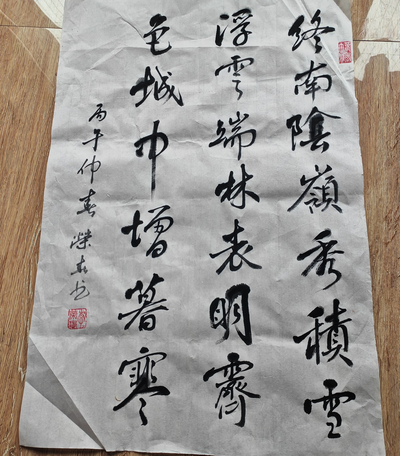 終南陰嶺秀積雪
浮雲端林表明霽
色城中增暮寒
丙午仲春榮书